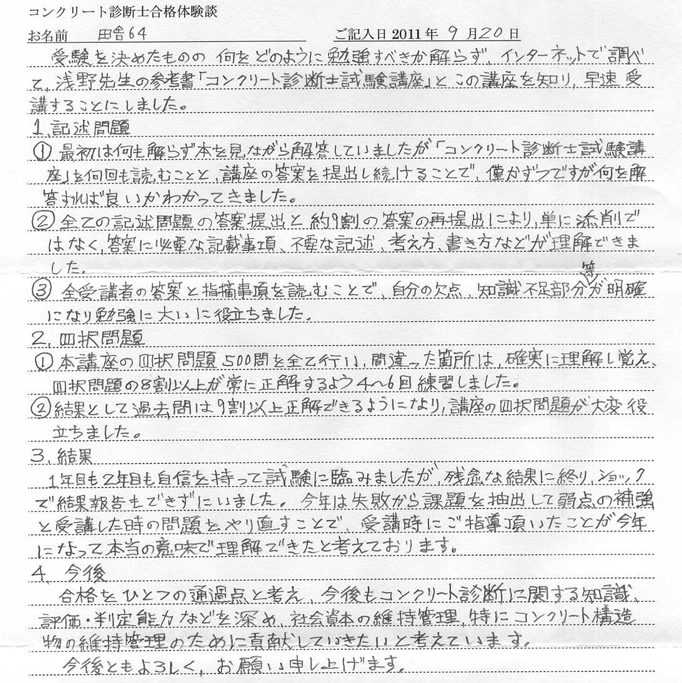 コンクリート診断士合格体験談
お名前 田舎64 ご記入日 2011年 9月20日
受験を決めたものの 何をどのように勉強すべきか解らず、インターネットで調べ
て、浅野先生の参考書「コンクリート診断士試験講座」と この講座を知り、早速 受
講することにしました。
1. 記述問題
① 最初は何も解らず本を見ながら解答していましたが「コンクリート診断士試験講
座」を何回も読むことと、講座の答案を提出し続けることで、僅かずつですが何を解
答すれば良いかわかってきました。
② 全ての記述問題の答案提出と約9割の答案の再提出により、単に添削で
はなく、答案に必要な記載事項、不要な記述、考え方、書き方などが理解できま
した。
③ 全受講者の答案と指摘事項を読むことで、自分の欠点、知識不足部分等が明確
になり勉強に大いに役立ちました。
2. 四択問題
① 本講座の四択問題500問を全て行い、間違った箇所は、確実に理解し覚え、
四択問題の8割以上が常に正解するよう4〜6回練習しました。
② 結果として過去問は9割以上正解できるようになり、講座の四択問題が大変役
立ちました。
3. 結果
1年目も2年目も自信を持って試験に臨みましたが、残念な結果に終り、ショック
で結果報告もできずにいました。今年は失敗から課題を抽出して弱点の補強
と受講した時の問題をやり直すことで、受講時にご指導頂いたことが今年
になって本当の意味で理解できたと考えております。
4. 今後
合格をひとつの通過点と考え、今後もコンクリート診断に関する知識、
評価・判定能力などを深め、社会資本の維持管理、特にコンクリート構造
物の維持管理のために貢献していきたいと考えています。
今後ともよろしく、お願い申し上げます。